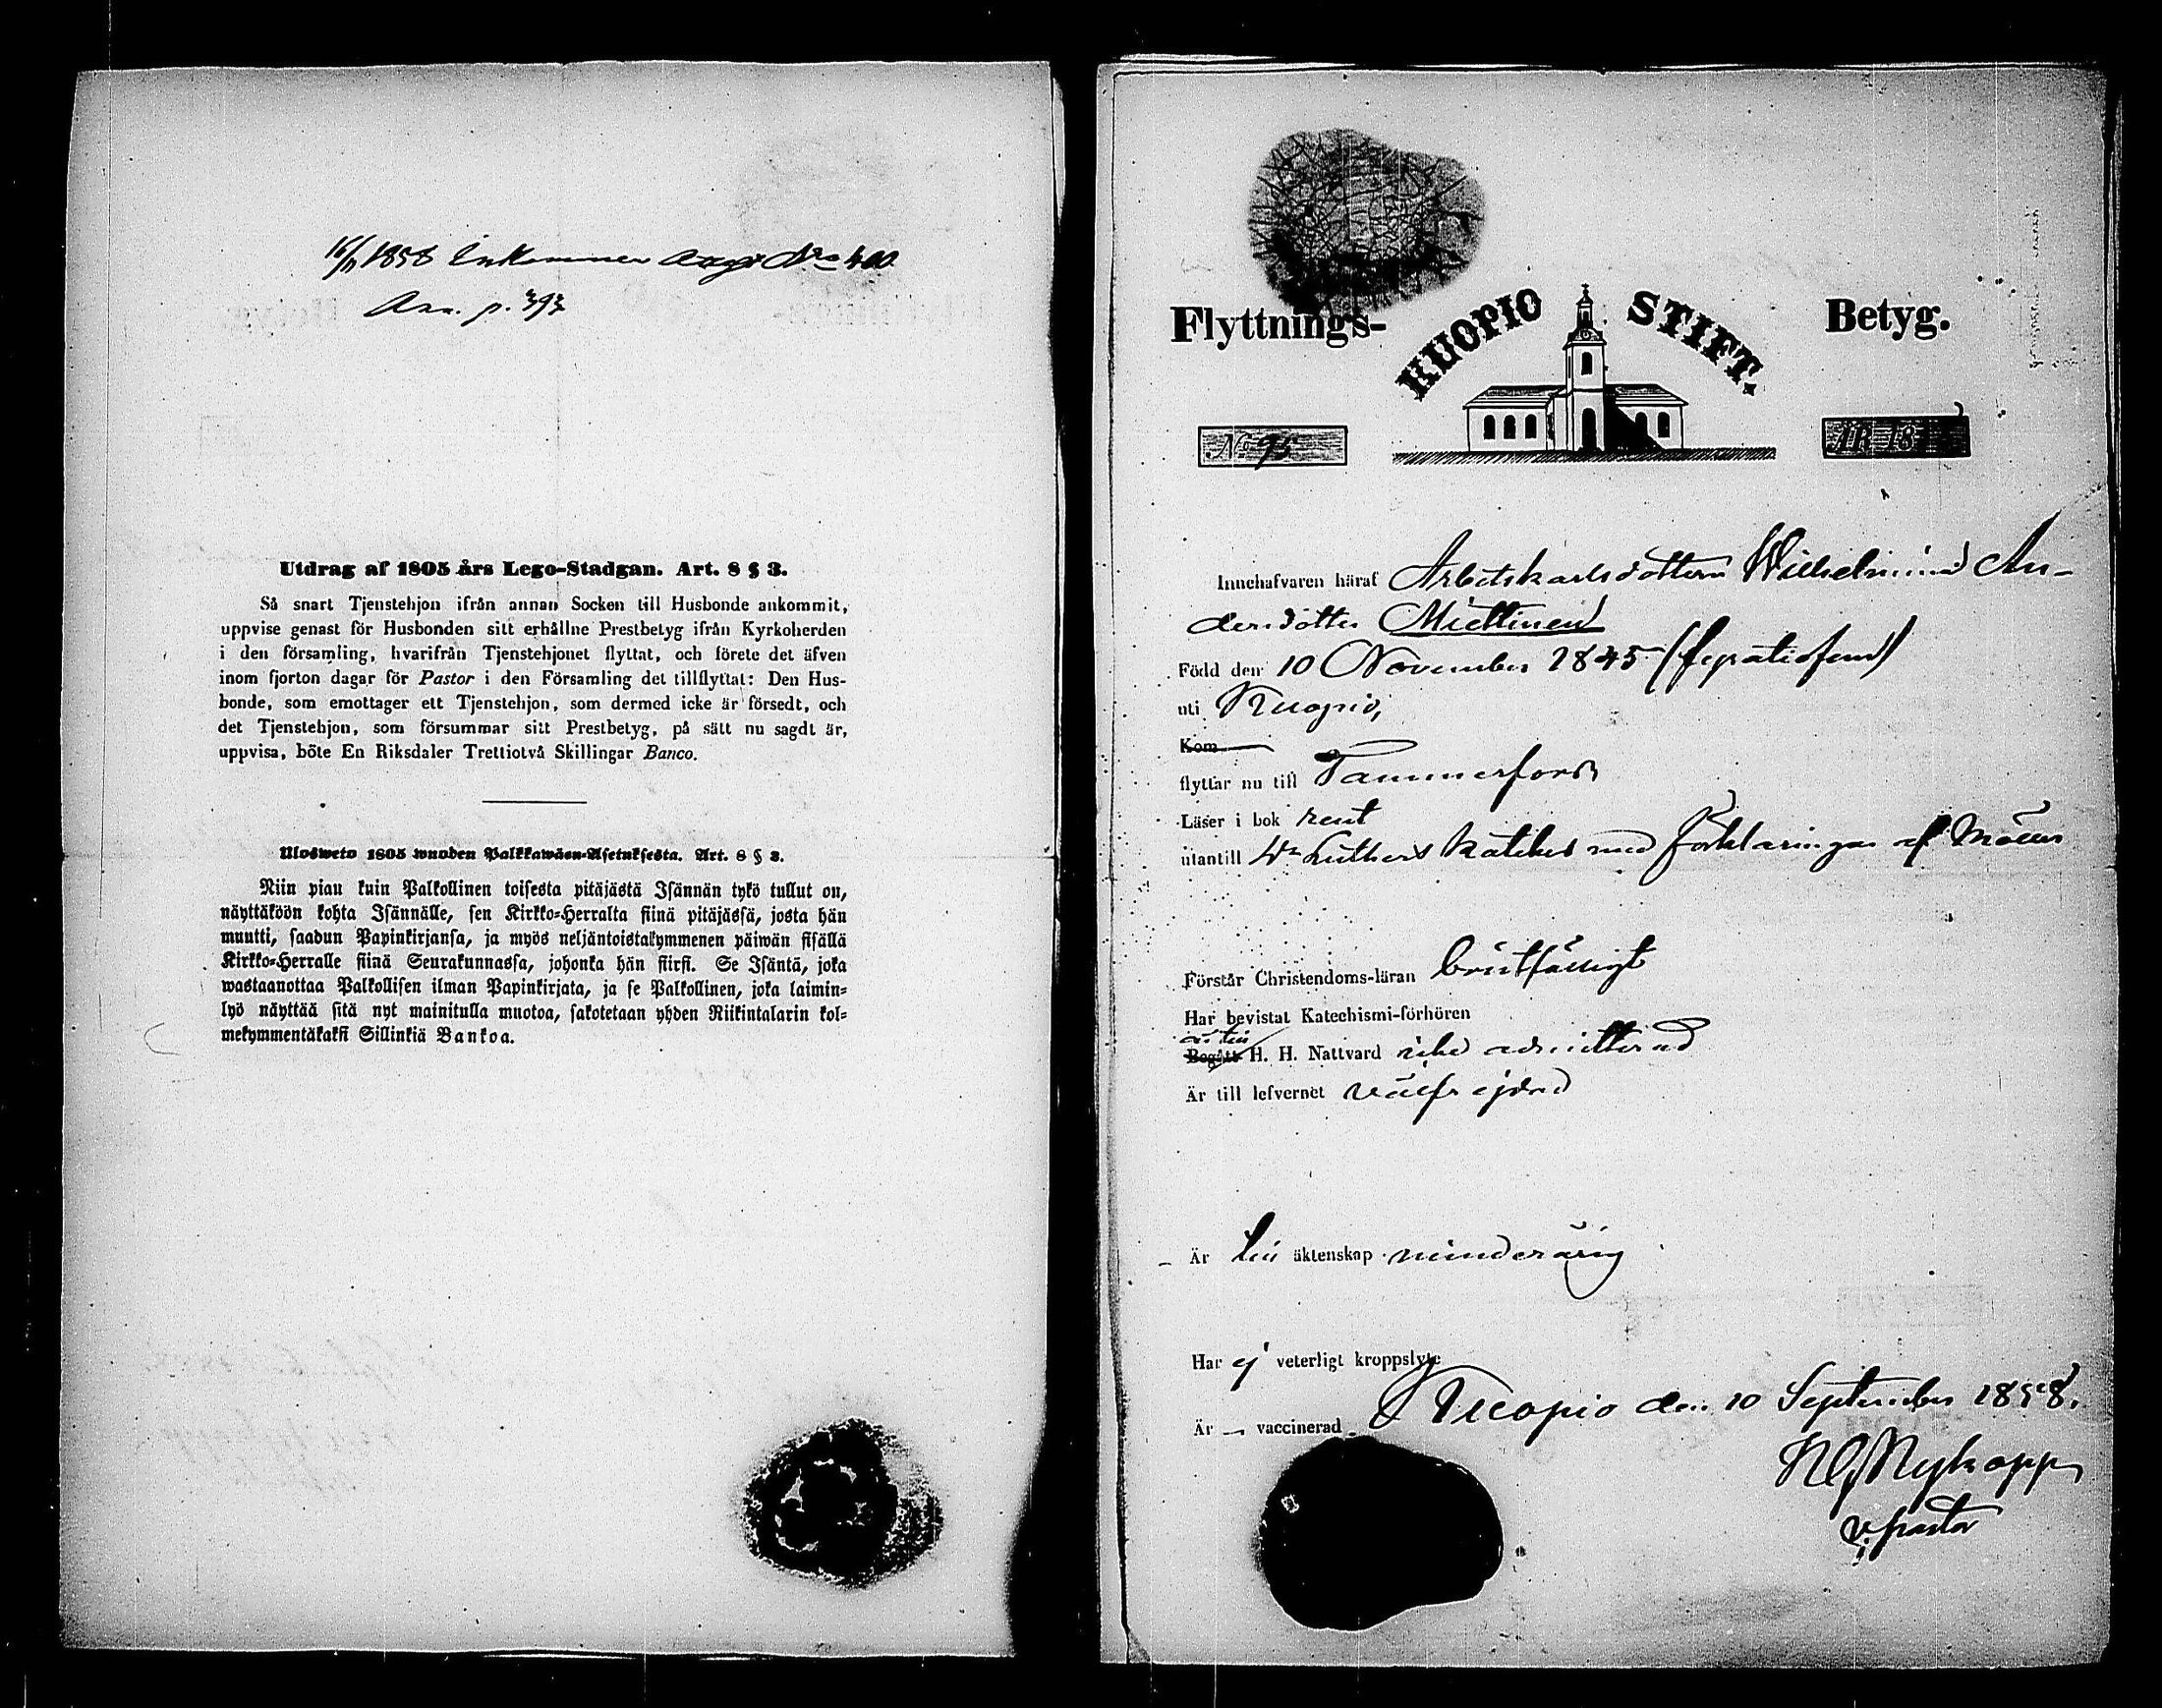 16/11 1858 Inkommen No 400
p. 393
Utdrag af 1805 års Lego-Stadgan. Art. 8 § 3.
Så snart Tjenstehjon ifrån annan Socken till Husbonde ankommit,
uppvise genast för Husbonden sitt erhållne Prestbetyg ifrån Kyrkoherden
i den församling, hvarifrån Tjenstehjonet flyttat, och förete det äfven
inom fjorton dagar för Pastor i den Församling det tillflyttat: Den Hus-
bonde, som emottager ett Tjenstehjon, som dermed icke är försedt, och
det Tjenstehjon, som försummar sitt Prestbetyg, på sätt nu sagdt är,
uppvisa, böte En Riksdaler Trettiotvå Skillingar Banco.
Ulosweto 1805 wuoden Palkkawäen-Asetuksesta. Art. 8 § 3.
Niin pian kuin Palkollinen toisesta pitäjästä Isännän tykö tullut on,
näyttäköön kohta Isännälle, sen Kirkko-Herralta siinä pitäjässä, josta hän
muutti, saadun Papinkirjansa, ja myös neljäntoistakymmenen päiwän sisällä
Kirkko-Herralle siinä Seurakunnassa, johonka hän siirsi. Se Isäntä, joka
wastaanottaa Palkollisen ilman Papinkirjata, ja se Palkollinen, joka laimin-
lyö näyttää sitä nyt mainitulla muotoa, sakotetaan yhden Riikintalarin kol-
mekymmentäkaksi Sillinkiä Bankoa.
Flyttnings- KUOPIO STIFT. Betyg.
No 95 ÅR 18
Innehafvaren häraf Arbetskarlsdottern Wilhelmina An-
dersdotter Miettinen
Född den 10 November 1845
uti Kuopio,
Kom
flyttar nu till Tammerfors
Läser i bok rent
utantill Dr Luthers kateches med förklaringar af Möller
Förstår Christendoms-läran bristfälligt
Har bevistat Katechismi-förhören
är till
Begått H. H. Nattvard icke admitterad
Är till lefvernet välfrejdad
Är till äktenskap minderårig
Har ej veterligt kroppslyte
Är vaccinerad. Kuopio den 10 September 1858.
Nykopp
v. pastor